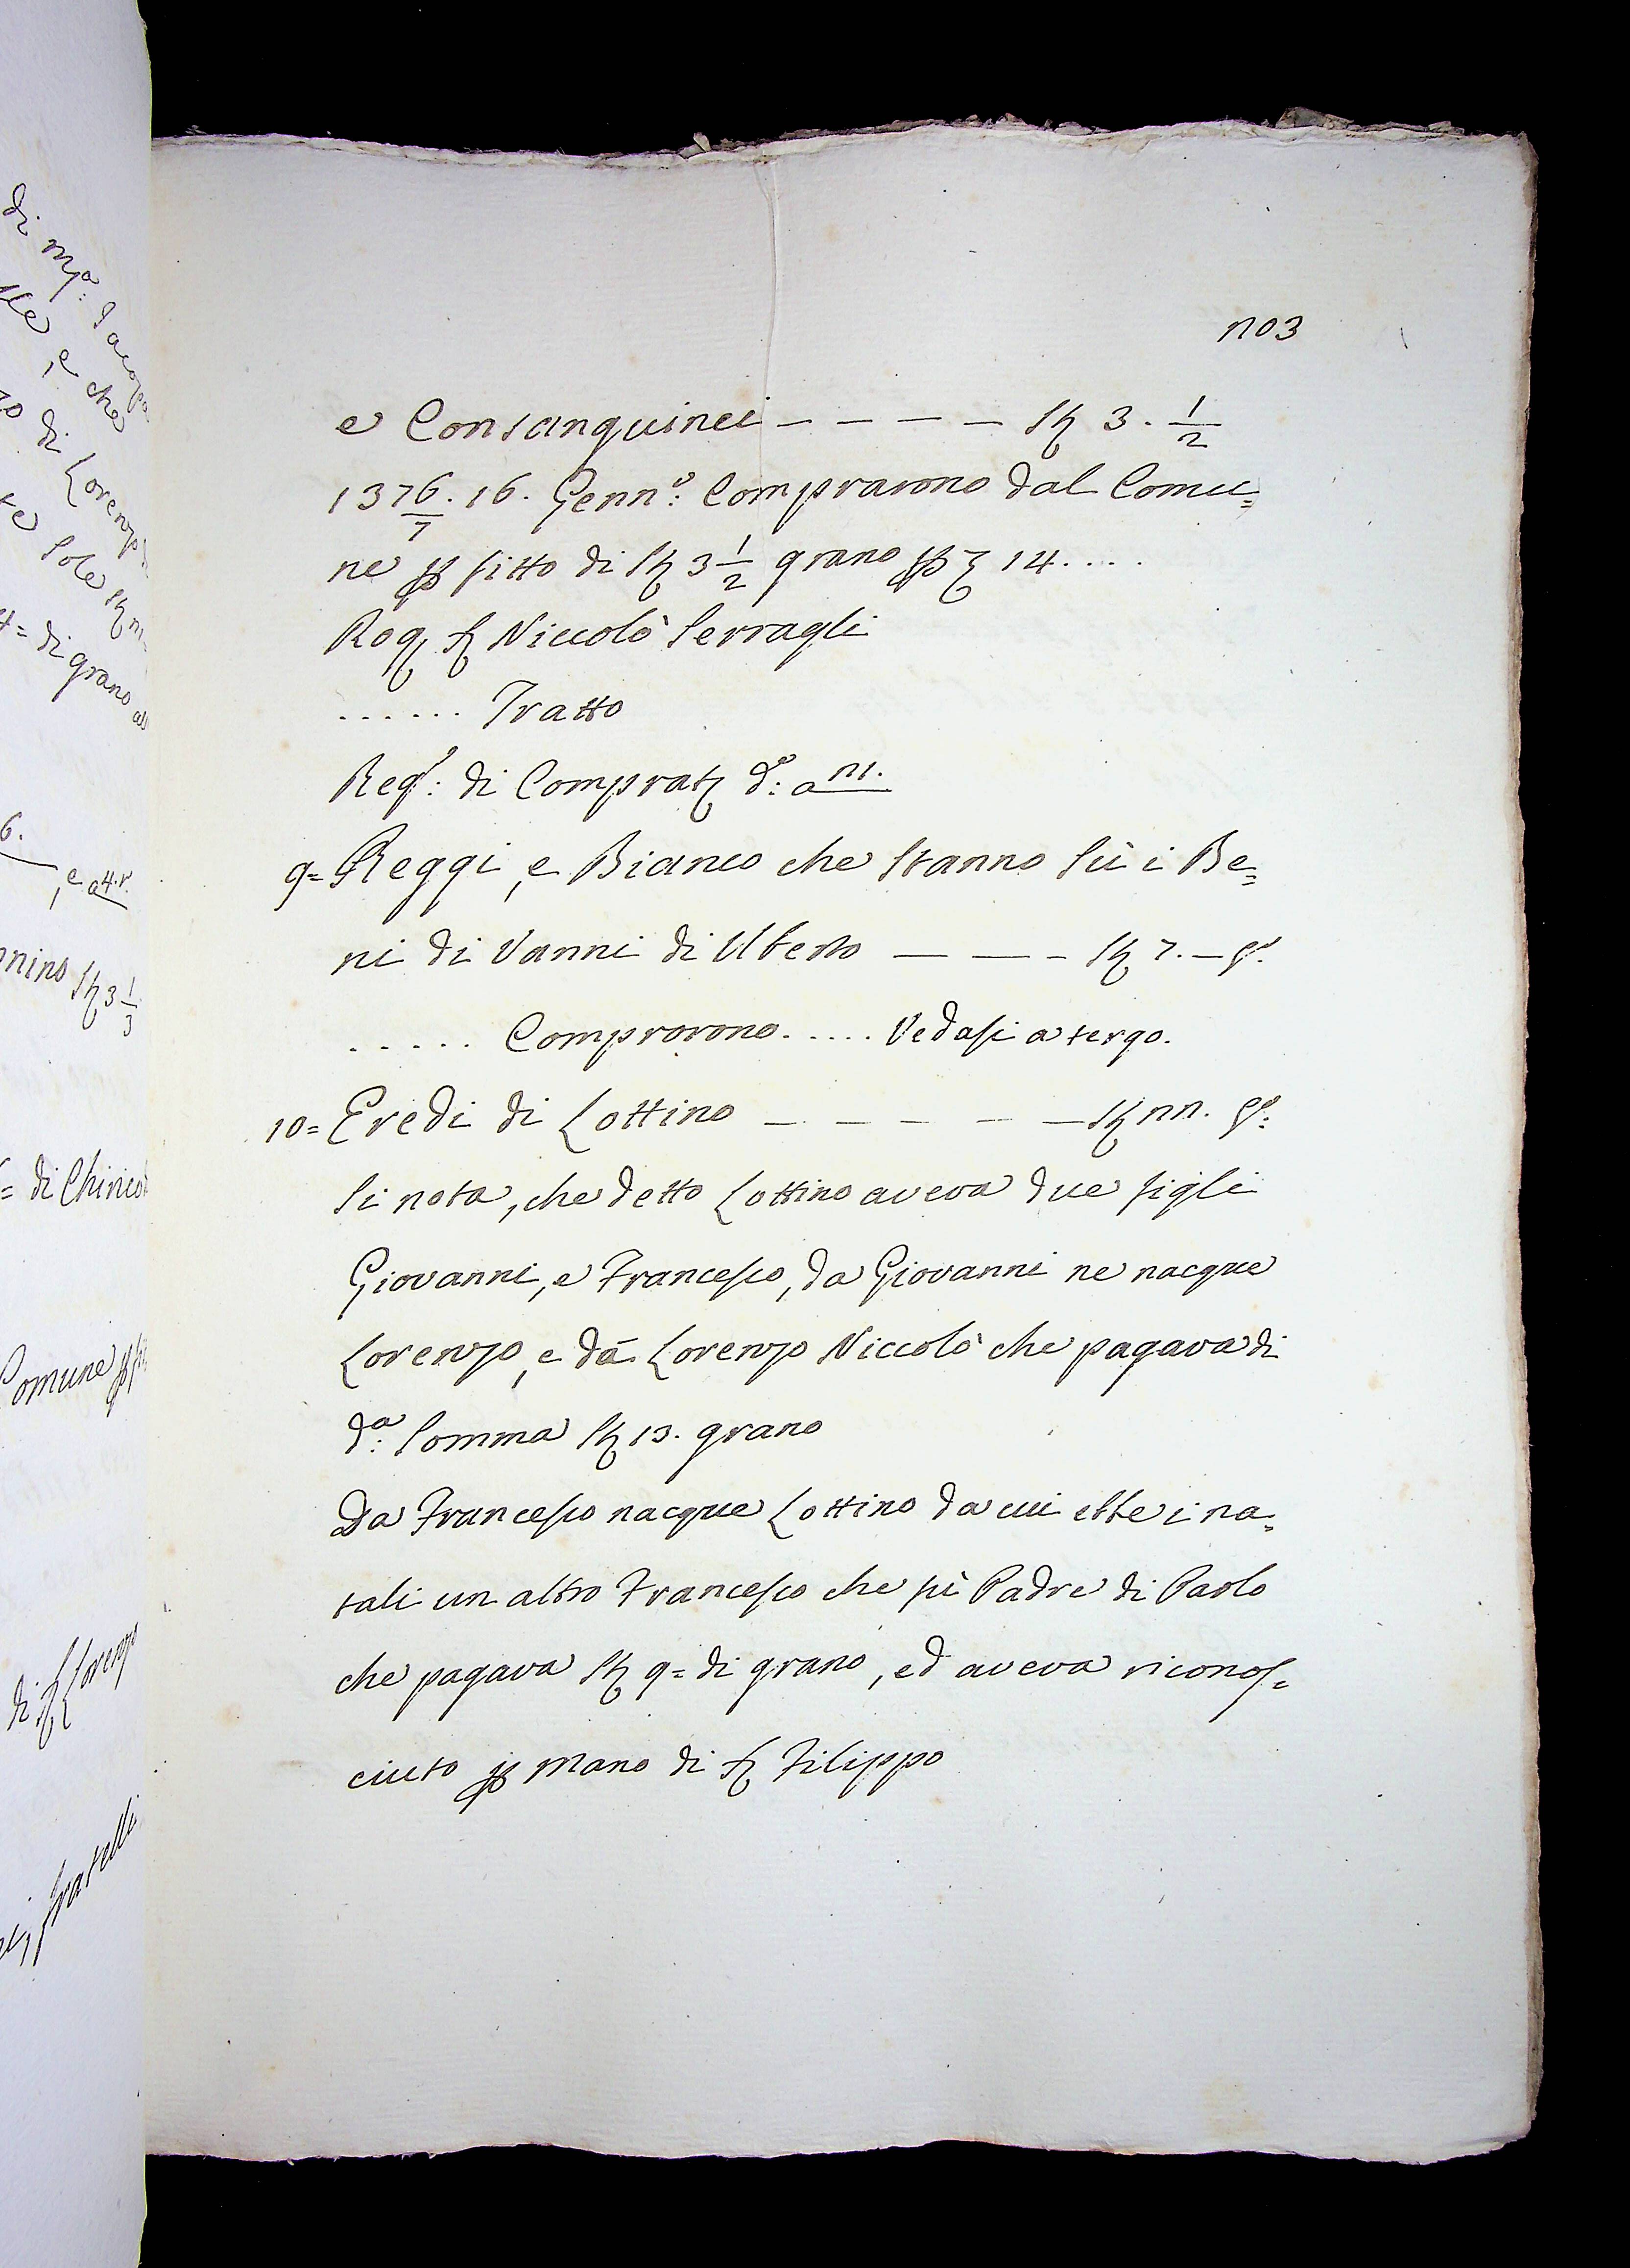 203
e Consanguinei - - - - - St 3. 1/2
1376/7. 16. Genn.o: Comprarono dal Comu=
ne p fitto di St 3 1/2 grano p 14. . . .
Rog. S. Niccolò Serragli
. . . . . . Tratto
Reg.o: di Comprat. d.o: a 21.
9= Reggi, e Bianco che stanno sù i Be=
ni di Vanni di Uberto — — - St 7. — g.o
. . . . . Comprorono. . . . . Vedasi a tergo.
10= Eredi di Lottino — - — - — St 22. g.o:
Si nota, che detto Lottino aveva due figli
Giovanni, e Francesco, da Giovanni ne nacque
Lorenzo, e da Lorenzo Niccolò che pagava di
d.a: Somma St 13. grano
Da Francesco nacque Lottino da cui ebbe i na=
tali un altro Francesco che fù Padre di Paolo
che pagava St 9= di grano, ed aveva riconos=
ciuto p mano di S. Filippo